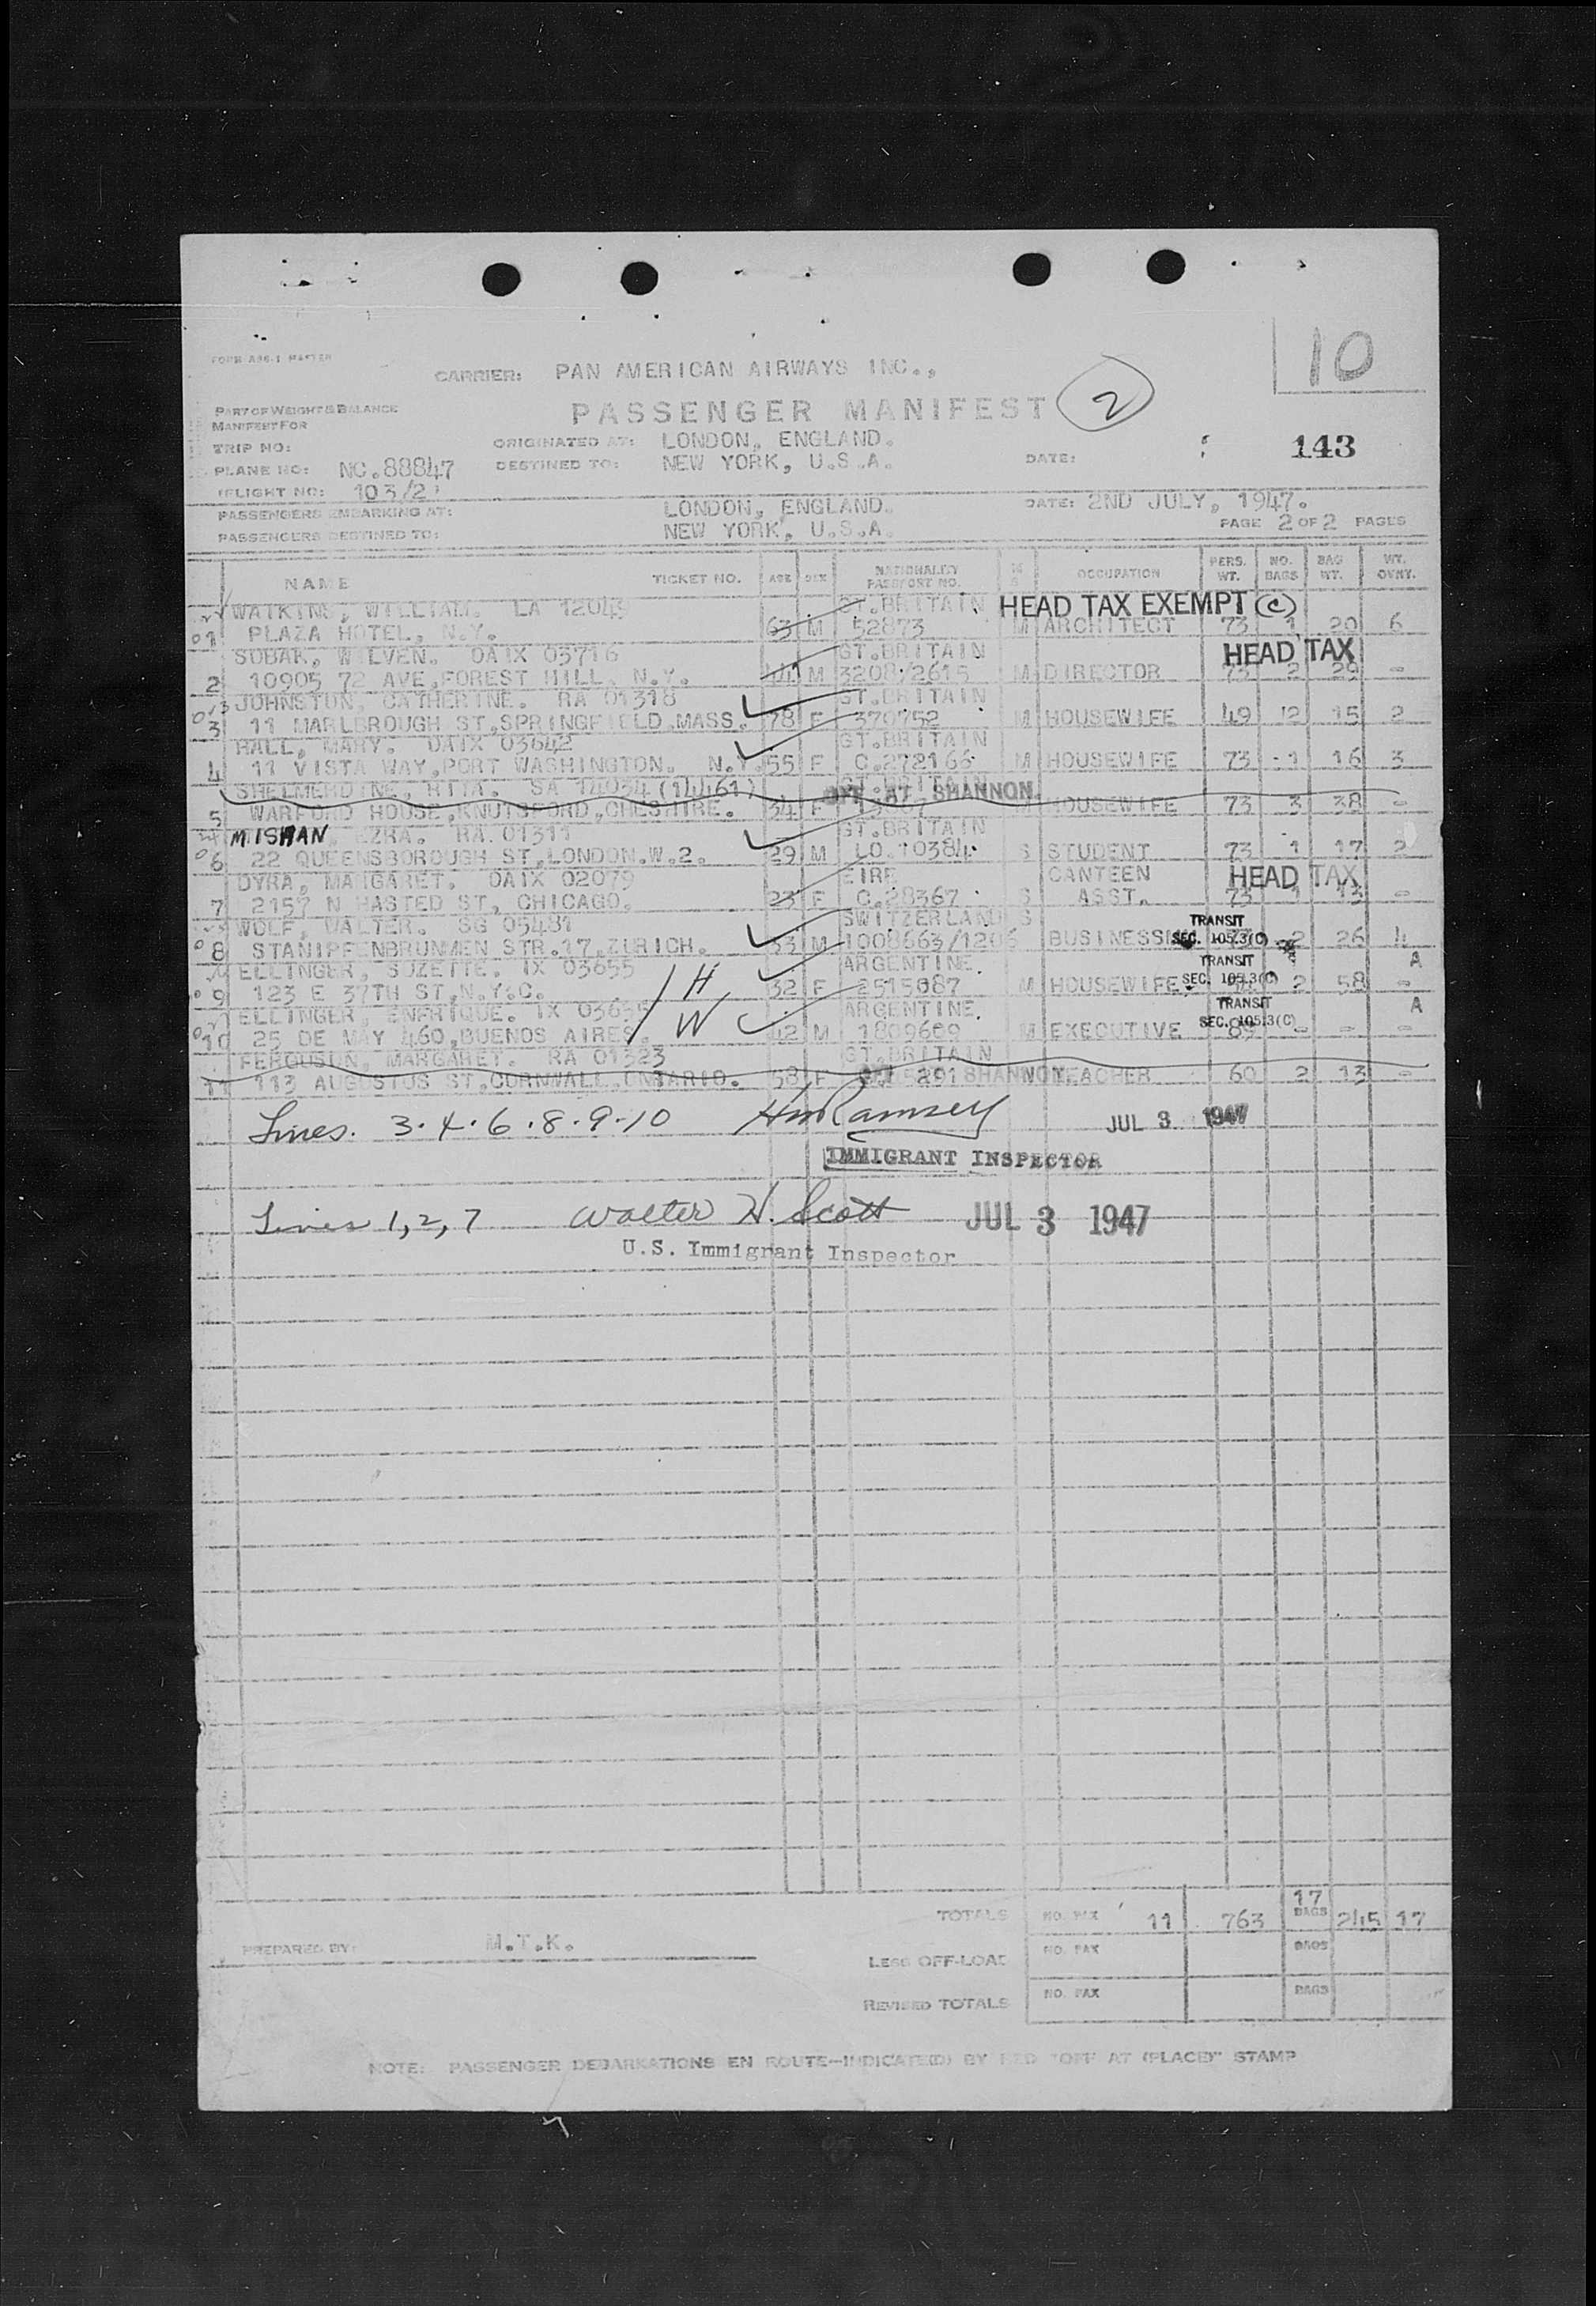 FORM A86-1 MASTER
10
CARRIER: PAN AMERICAN AIRWAYS INC.,
PART OF WEIGHT & BALANCE
MANIFEST FOR
PASSENGER MANIFEST 2
TRIP NO: ORIGINATED AT: LONDON, ENGLAND. 143
PLANE NO: NC.88847 DESTINED TO: NEW YORK, U.S.A. DATE:
FLIGHT NO: 103/2
PASSENGERS EMBARKING AT: LONDON, ENGLAND. DATE: 2ND JULY, 1947.
PASSENGERS DESTINED TO: NEW YORK, U.S.A. PAGE 2 OF 2 PAGES
NAME TICKET NO. AGE SEX NATIONALITY PASSPORT NO. M S OCCUPATION PERS. WT. NO. BAGS BAG WT. WT. OVNY.
WATKINS, WILLIAM. LA 12043 GT.BRITAIN HEAD TAX EXEMPT (C)
1 PLAZA HOTEL, N.Y. 63 M 52873 M ARCHITECT 73 1 20 6
SOBAK, WILVEN. OAIX 03716 GT.BRITAIN HEAD TAX
2 10905 72 AVE,FOREST HILL. N.Y. 44 M 3208/2615 M DIRECTOR 73 2 29 -
JOHNSTON, CATHERINE. RA 01318 GT.BRITAIN
3 11 MARLBROUGH ST,SPRINGFIELD.MASS. 78 F 370752 M HOUSEWIFE 49 2 15 2
HALL, MARY. OAIX 03642 GT.BRITAIN
4 11 VISTA WAY,PORT WASHINGTON. N.Y. 55 F C.272166 M HOUSEWIFE 73 1 16 3
SHELMERDINE, RITA. SA 14034 (14461) GT.BRITAIN OFF AT SHANNON.
5 WARFORD HOUSE,KNUTSFORD,CHESHIRE. 34 F M HOUSEWIFE 73 3 38 -
MISHAN, EZRA. RA. 01311 GT.BRITAIN
6 22 QUEENSBOROUGH ST,LONDON.W.2. 29 M LO.10384 S STUDENT 73 1 17 2
DYRA, MARGARET. OAIX 02079 EIRE CANTEEN HEAD TAX
7 2157 N HASTED ST, CHICAGO. 23 F C.28367 S ASST. 73 1 13 -
WOLF, WALTER. SG 05481 SWITZERLAND S TRANSIT
8 STANIPFENBRUNMEN STR.17,ZURICH. 33 M 1008663/1206 BUSINESS SEC. 105.3(C) 2 26 4
ELLINGER, SUZETTE. IX 03655 H ARGENTINE. TRANSIT A
9 123 E 37TH ST,N.Y.C. 32 F 2515087 M HOUSEWIFE SEC. 105.3(C) 2 58 -
ELLINGER, ENERIQUE. IX 03655 W ARGENTINE. TRANSIT A
10 25 DE MAY 460,BUENOS AIRES. 42 M 1809609 M EXECUTIVE SEC. 105.3(C) 89 - - -
FERGUSON, MARGARET. RA 01323 GT.BRITAIN
11 113 AUGUSTUS ST.CORNWALL.ONTARIO. 58 F SHANNON TEACHER 60 2 13 -
Lines. 3.4.6.8.9.10 HmRamsey JUL 3 1947
IMMIGRANT INSPECTOR
Lines 1,2,7 Walter H. Scott JUL 3 1947
U.S. Immigrant Inspector
TOTALS NO. PAX 11 763 17 BAGS 245 17
PREPARED BY: M.T.K.
LESS OFF-LOAD NO. PAX BAGS
REVISED TOTALS NO. PAX BAGS
NOTE: PASSENGER DEBARKATIONS EN ROUTE—INDICATE(D) BY RED "OFF AT (PLACE)" STAMP